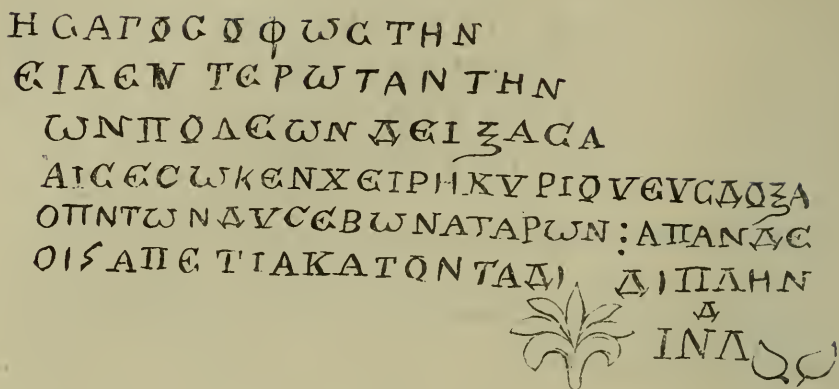 ΗϹΑΓΟϹΟΦωϹΤΗΝ
ΕΙΛΕΝ ΤΕΡωΤΑΝΤΗΝ
ωΝΠΟΛΕωΝ ΔΕΙΞΑϹΑ
ΑΙϹΕϹωΚΕΝΧΕΙΡΗΚΥΡΙΟΥΕΥϹΔΟΞΑ
ΟΠΝΤωΝΔΥϹΕΒωΝΑΤΑΡωΝ:ΑΠΑΝΔΕ
ΟΙϚΑΠΕΤΙΑΚΑΤΟΝΤΑΔΙ ΔΙΠΛΗΝ
Δ
ΙΝΛ